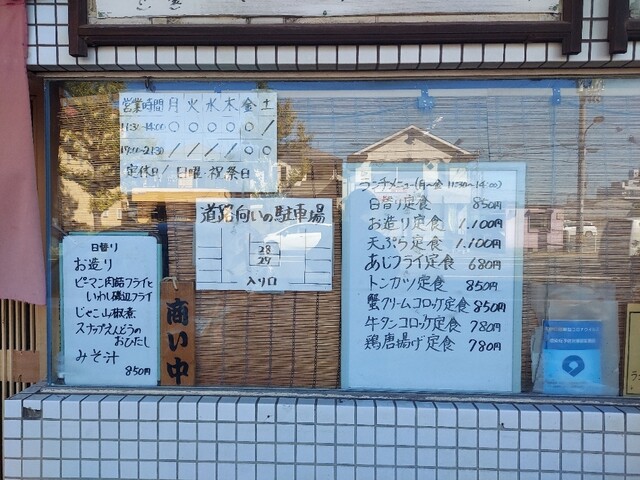 営業時間 月 火 水 木 金 土
11:30-14:00 ○ ○ ○ ○ ○ /
17:00-21:30 / / / / ○ ○
定休日/ 日曜・祝祭日
道路向いの駐車場
28
27
入り口
日替り
お造り
ピーマン肉詰フライと
いわし磯辺フライ
じゃこ山椒煮
スナップえんどうの
おひたし
みそ汁
850円
商い中
ランチメニュー(月〜金 11:30〜14:00)
日替り定食 850円
お造り定食 1.100円
天ぷら定食 1.100円
あじフライ定食 680円
トンカツ定食 850円
蟹クリームコロッケ定食 850円
牛タンコロッケ定食 780円
鶏唐揚げ定食 780円